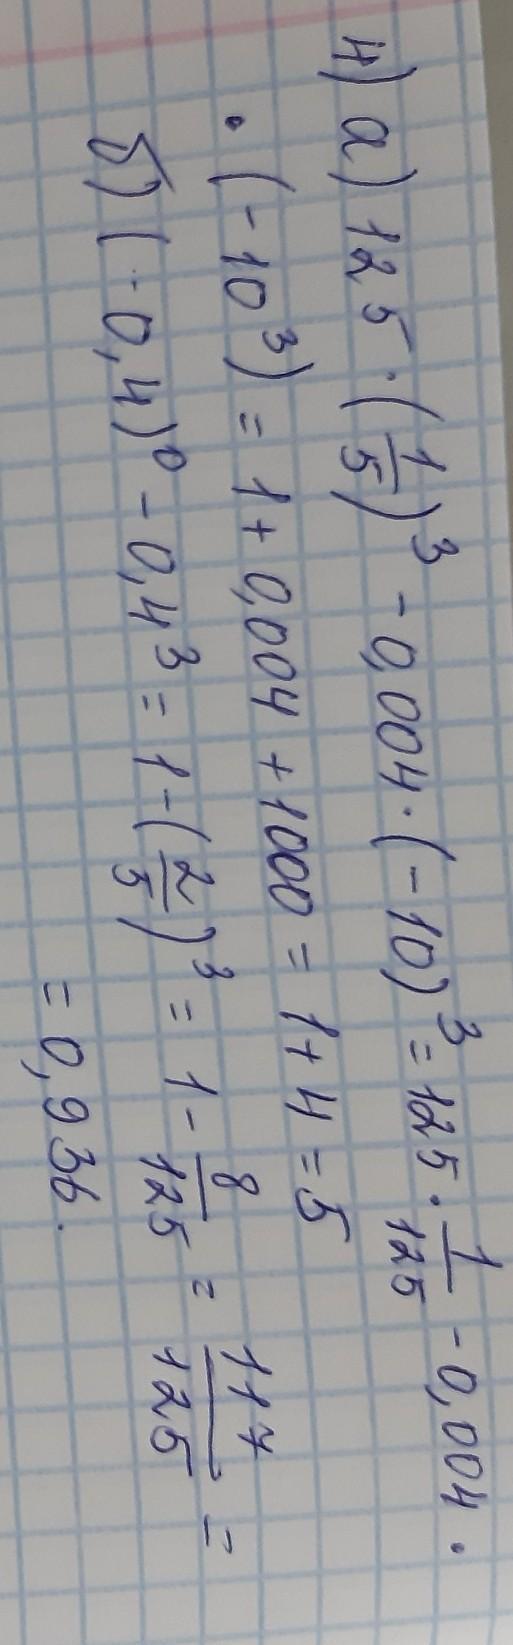 4) а) 125 · (1/5)³ - 0,004 · (-10)³ = 125 · 1/125 - 0,004 ·
· (-10³) = 1 + 0,004 + 1000 = 1 + 4 = 5
б) (-0,4)⁰ - 0,4³ = 1 - (2/5)³ = 1 - 8/125 = 117/125 =
= 0,936.